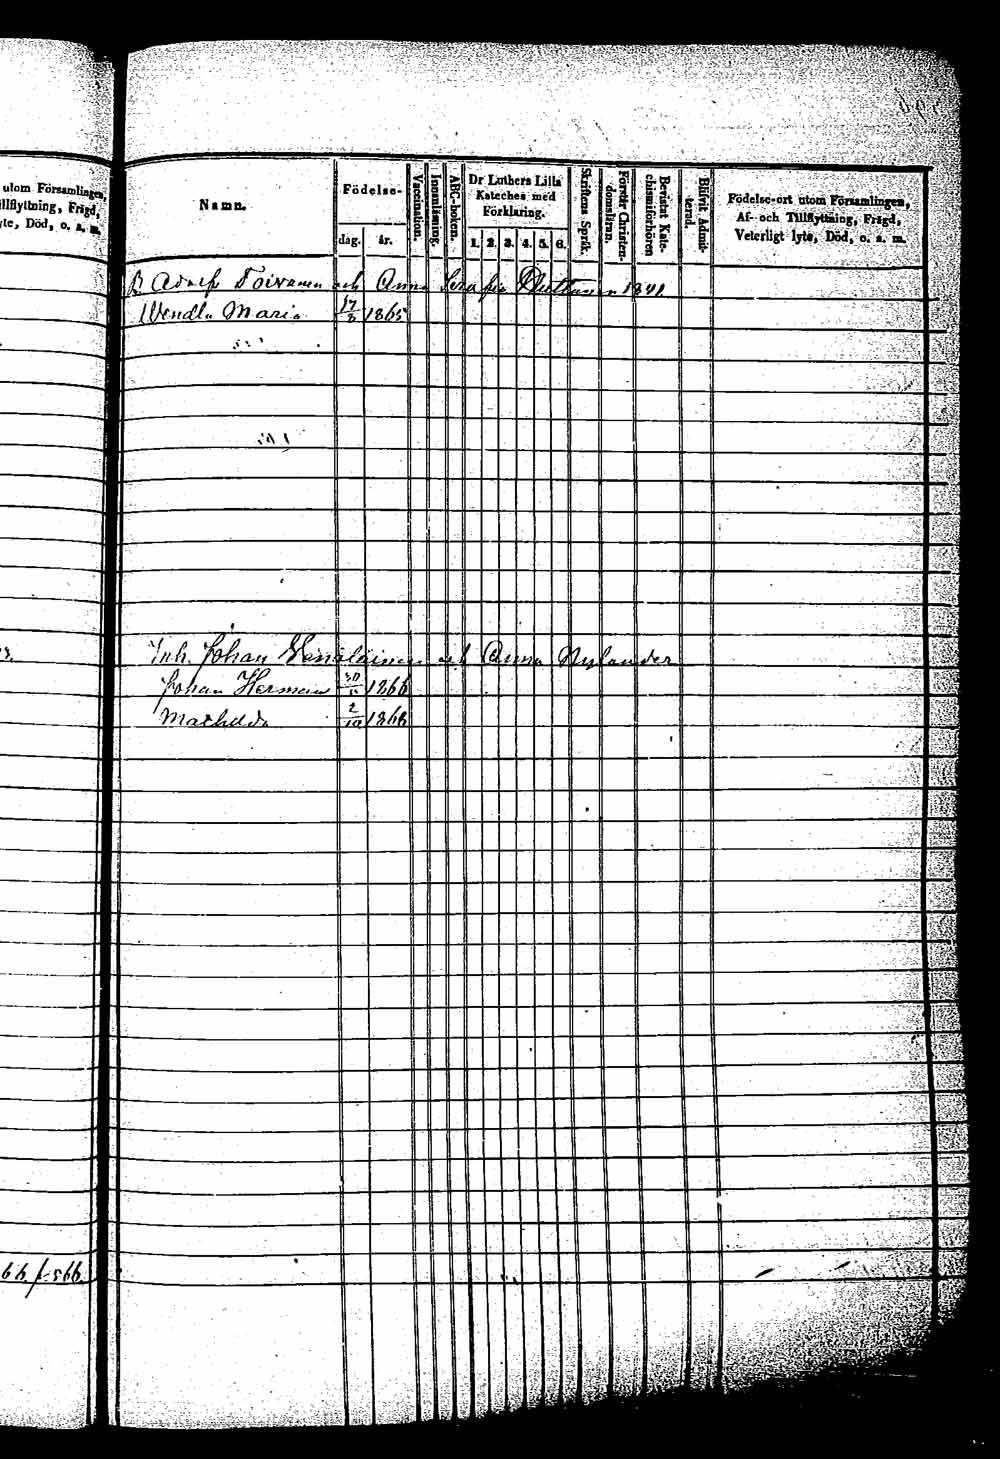 utom Församlingen,
illflyttning, Frägd,
yte, Död, o. s. m.
Namn.
Födelse-
dag. år.
Vaccination.
Innanläsning.
ABC-boken.
Dr Luthers Lilla
Kateches med
Förklaring.
1. 2. 3. 4. 5. 6.
Skriftens Språk.
Förstår Christen-
domsläran.
Bevistat Kate-
chismiförhören
Blifvit Admit-
terad.
Födelse-ort utom Församlingen,
Af- och Tillflyttning, Frägd,
Veterligt lyte, Död, o. s. m.
B. Adolf Toivanen och Anna Serafia 1841.
Wendla Maria 17/3 1865
Inh. Johan Venäläinen och Anna Nylander
Johan Herman 30/11 1866
Mathilda 2/10 1868